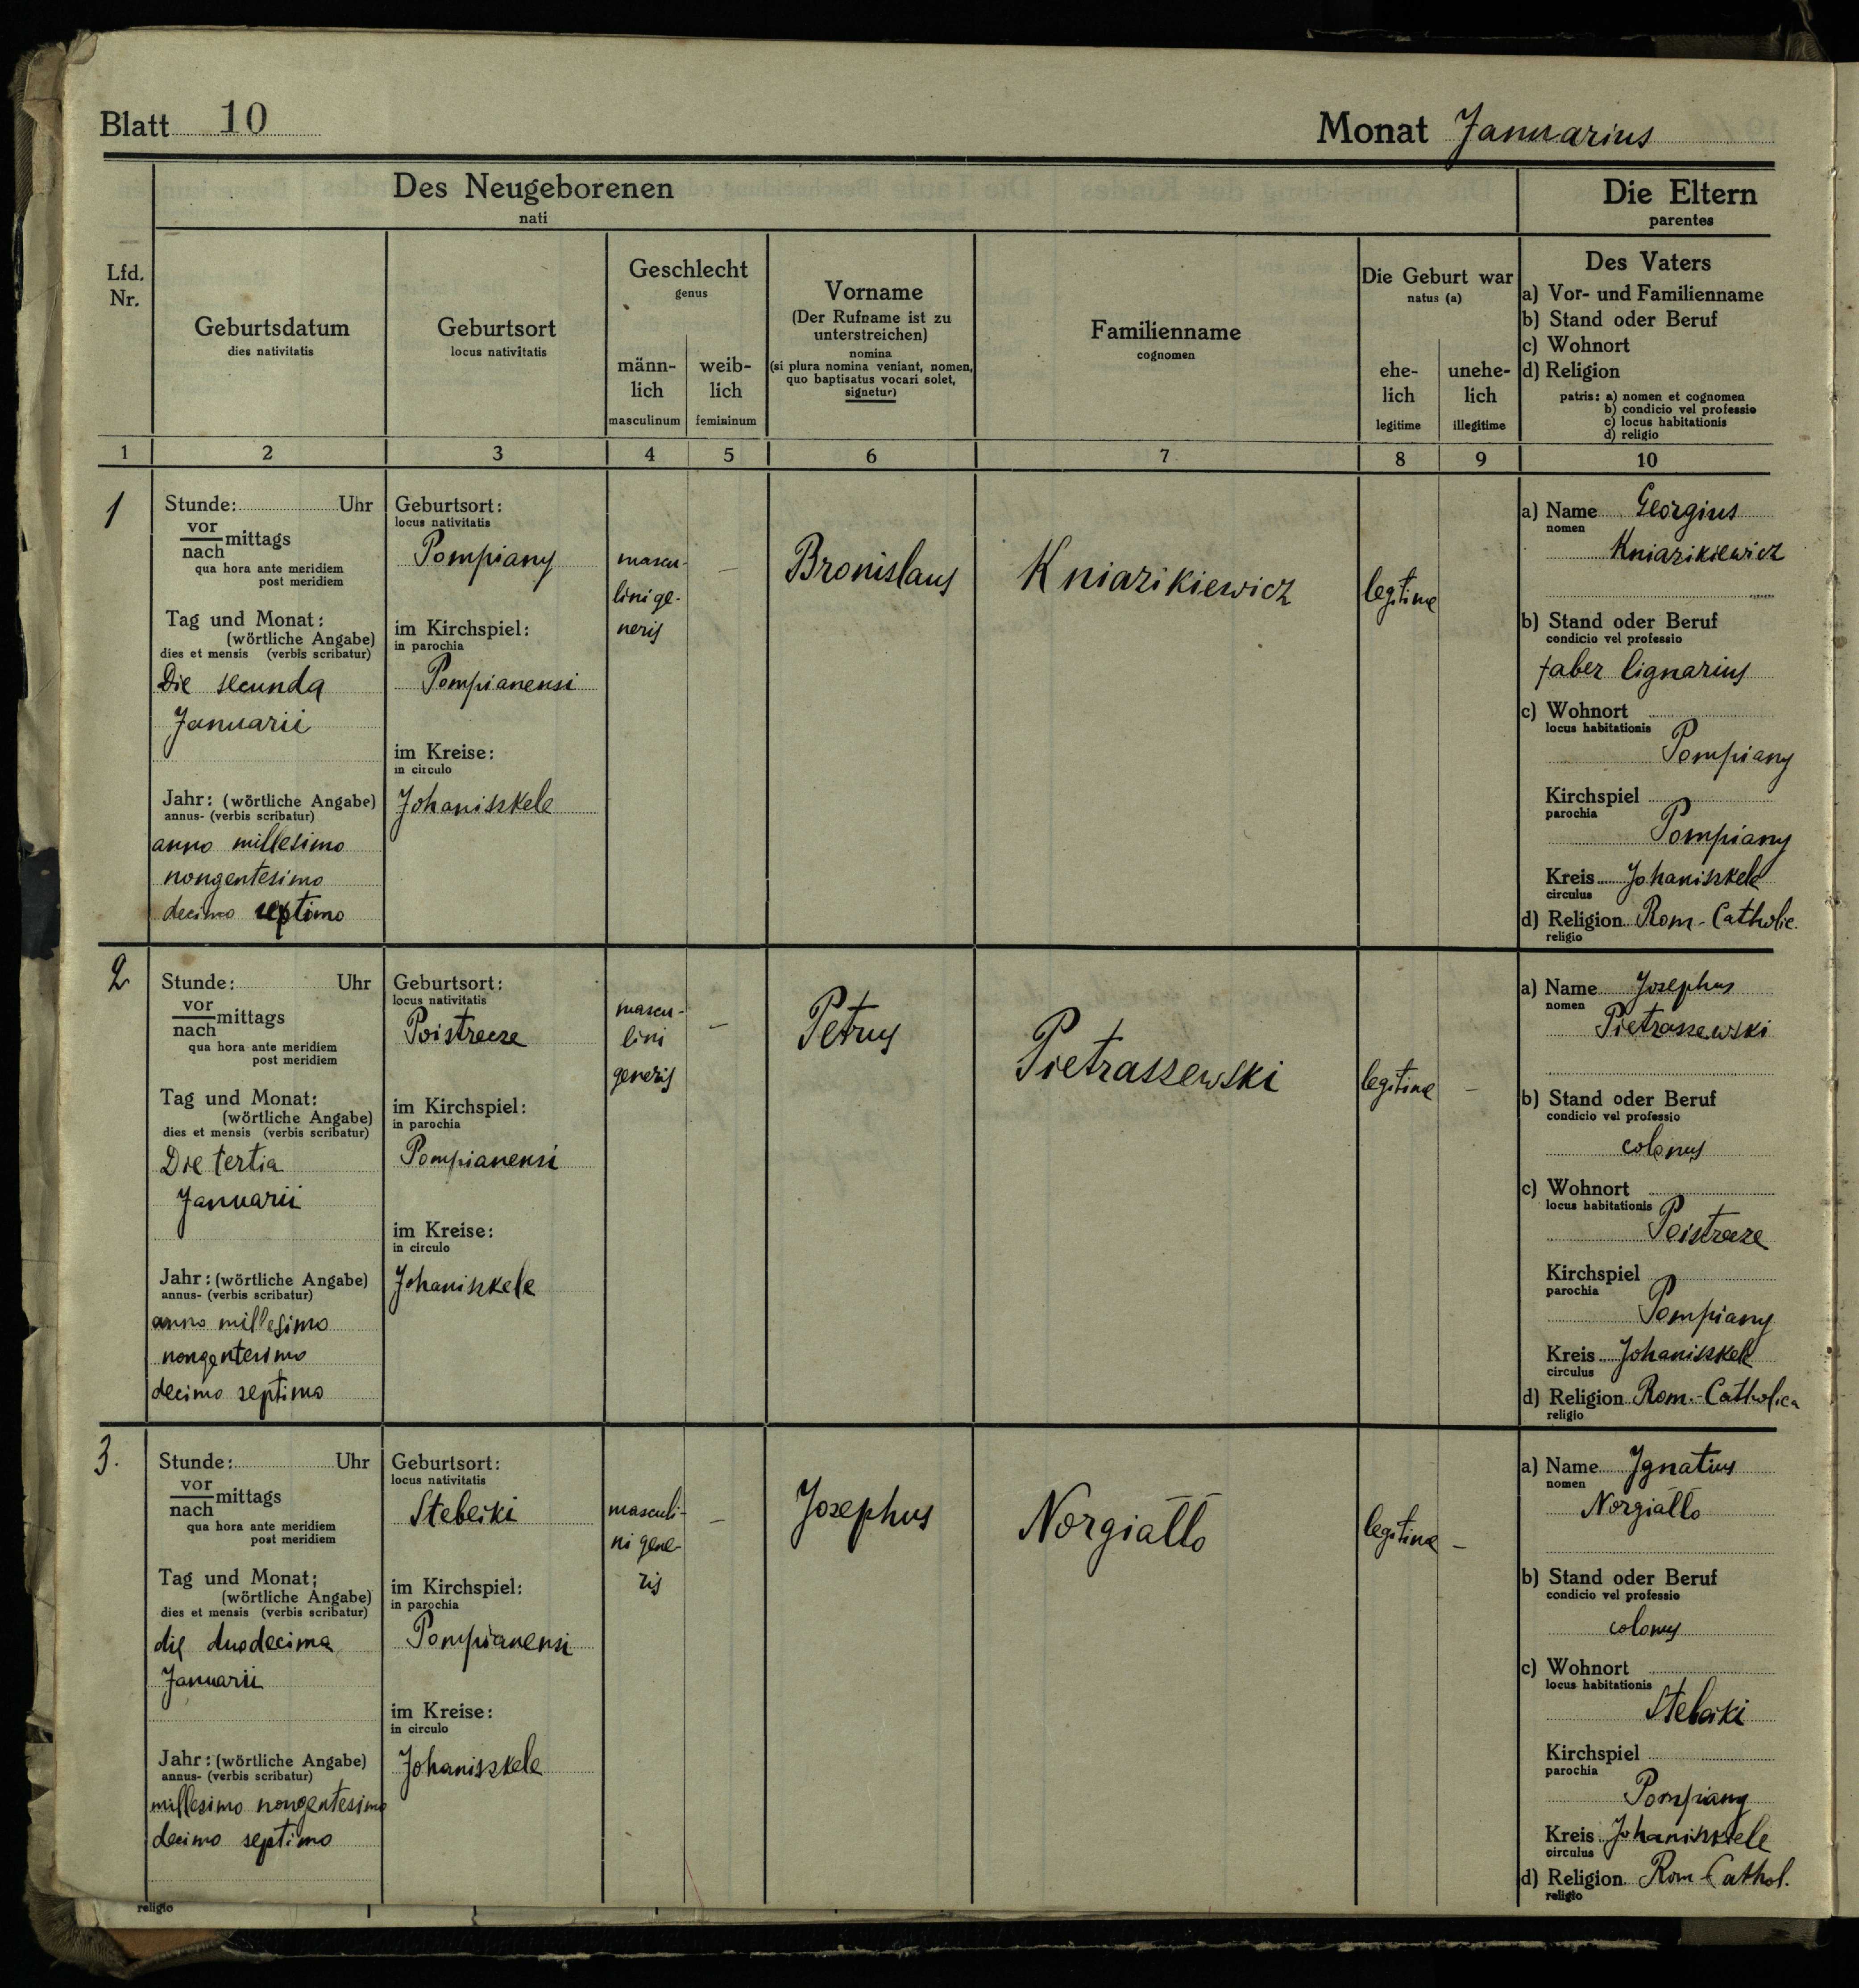 Blatt 10
Monat Januarius
Des Neugeborenen
nati
Die Eltern
parentes
Lfd.
Nr.
Geburtsdatum
dies nativitatis
Geburtsort
locus nativitatis
Geschlecht
genus
männ-
lich
masculinum
weib-
lich
femininum
Vorname
(Der Rufname ist zu
unterstreichen)
nomina
(si plura nomina veniant, nomen,
quo baptisatus vocari solet,
signetur)
Familienname
cognomen
Die Geburt war
natus (a)
ehe-
lich
legitime
unehe-
lich
illegitime
Des Vaters
a) Vor- und Familienname
b) Stand oder Beruf
c) Wohnort
d) Religion
patris: a) nomen et cognomen
b) condicio vel professio
c) locus habitationis
d) religio
1 2 3 4 5 6 7 8 9 10
1
Stunde: Uhr
vor
nach mittags
qua hora ante meridiem
post meridiem
Tag und Monat:
(wörtliche Angabe)
dies et mensis (verbis scribatur)
Die secunda
Januarii
Jahr: (wörtliche Angabe)
annus- (verbis scribatur)
anno millesimo
nongentesimo
decimo septimo
Geburtsort:
locus nativitatis
Pompiany
im Kirchspiel:
in parochia
Pompianensi
im Kreise:
in circulo
Johaniszkele
mascu-
lini ge-
neris
—
Bronislaus
Kniazikiewicz
legitime
a) Name Georgius
nomen
Kniazikiewicz
b) Stand oder Beruf
condicio vel professio
faber lignarius
c) Wohnort
locus habitationis
Pompiany
Kirchspiel
parochia
Pompiany
Kreis Johaniszkele
circulus
d) Religion Rom-Catholic.
religio
2
Stunde: Uhr
vor
nach mittags
qua hora ante meridiem
post meridiem
Tag und Monat:
(wörtliche Angabe)
dies et mensis (verbis scribatur)
Die tertia
Januarii
Jahr: (wörtliche Angabe)
annus- (verbis scribatur)
anno millesimo
nongentesimo
decimo septimo
Geburtsort:
locus nativitatis
im Kirchspiel:
in parochia
Pompianensi
im Kreise:
in circulo
Johaniszkele
mascu-
lini
generis
—
Petrus
Pietraszewski
legitime
—
a) Name Josephus
nomen
Pietraszewski
b) Stand oder Beruf
condicio vel professio
colonus
c) Wohnort
locus habitationis
Kirchspiel
parochia
Pompiany
Kreis Johaniszkele
circulus
d) Religion Rom.-Catholica
religio
3.
Stunde: Uhr
vor
nach mittags
qua hora ante meridiem
post meridiem
Tag und Monat;
(wörtliche Angabe)
dies et mensis (verbis scribatur)
die duodecima
Januarii
Jahr: (wörtliche Angabe)
annus- (verbis scribatur)
millesimo nongentesimo
decimo septimo
Geburtsort:
locus nativitatis
Stebeiki
im Kirchspiel:
in parochia
Pompianensi
im Kreise:
in circulo
Johaniszkele
masculi-
ni gene-
ris
—
Josephus
Norgiałło
legitime
—
a) Name Ignatius
nomen
Norgiałło
b) Stand oder Beruf
condicio vel professio
colonus
c) Wohnort
locus habitationis
Stebeiki
Kirchspiel
parochia
Pompiany
Kreis Johaniszkiele
circulus
d) Religion Rom-Cathol.
religio
religio